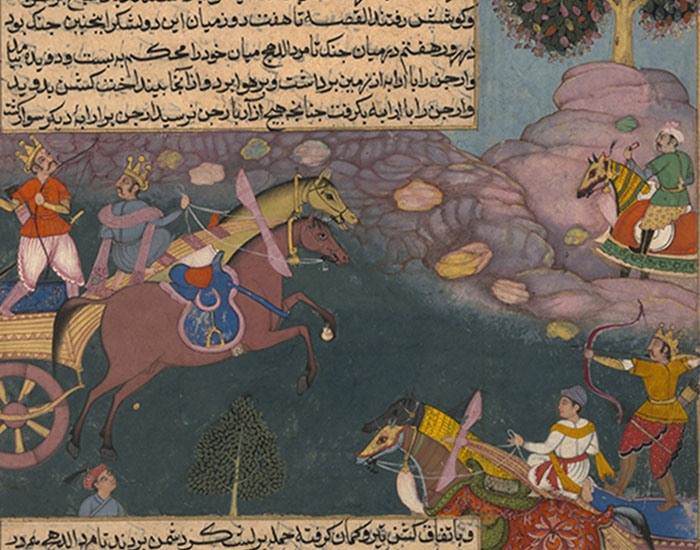 و کوشش رفتند القصه تا هفت روز میان این دو لشکر اینچنین جنک بود
در روز هفتم در میان جنک تامردالدهج میان خود را محکم بربست و دویده بیامد
و ارجن را با ارابه از زمین برداشت و بر هوا برد و از آنجا بینداخت کشن بدوید
و ارجن را با ارابه بکرفت چنانچه هیچ آزار بارجن نرسید ارجن بر ارابه دیکر سوار کشت
و باتفاق کشن تیر و کمان کرفته حمله بر لشکر دشمن بردند تامردالدهج